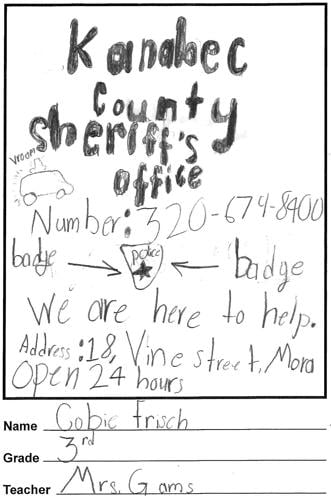 Kanabec
County
Sheriff's
office
Vroom
Number: 320-679-8400
badge
police
badge
We are here to help.
Address: 18, Vine street, Mora
Open 24 hours
Name Cobie Frisch
Grade 3rd
Teacher Mrs. Gams